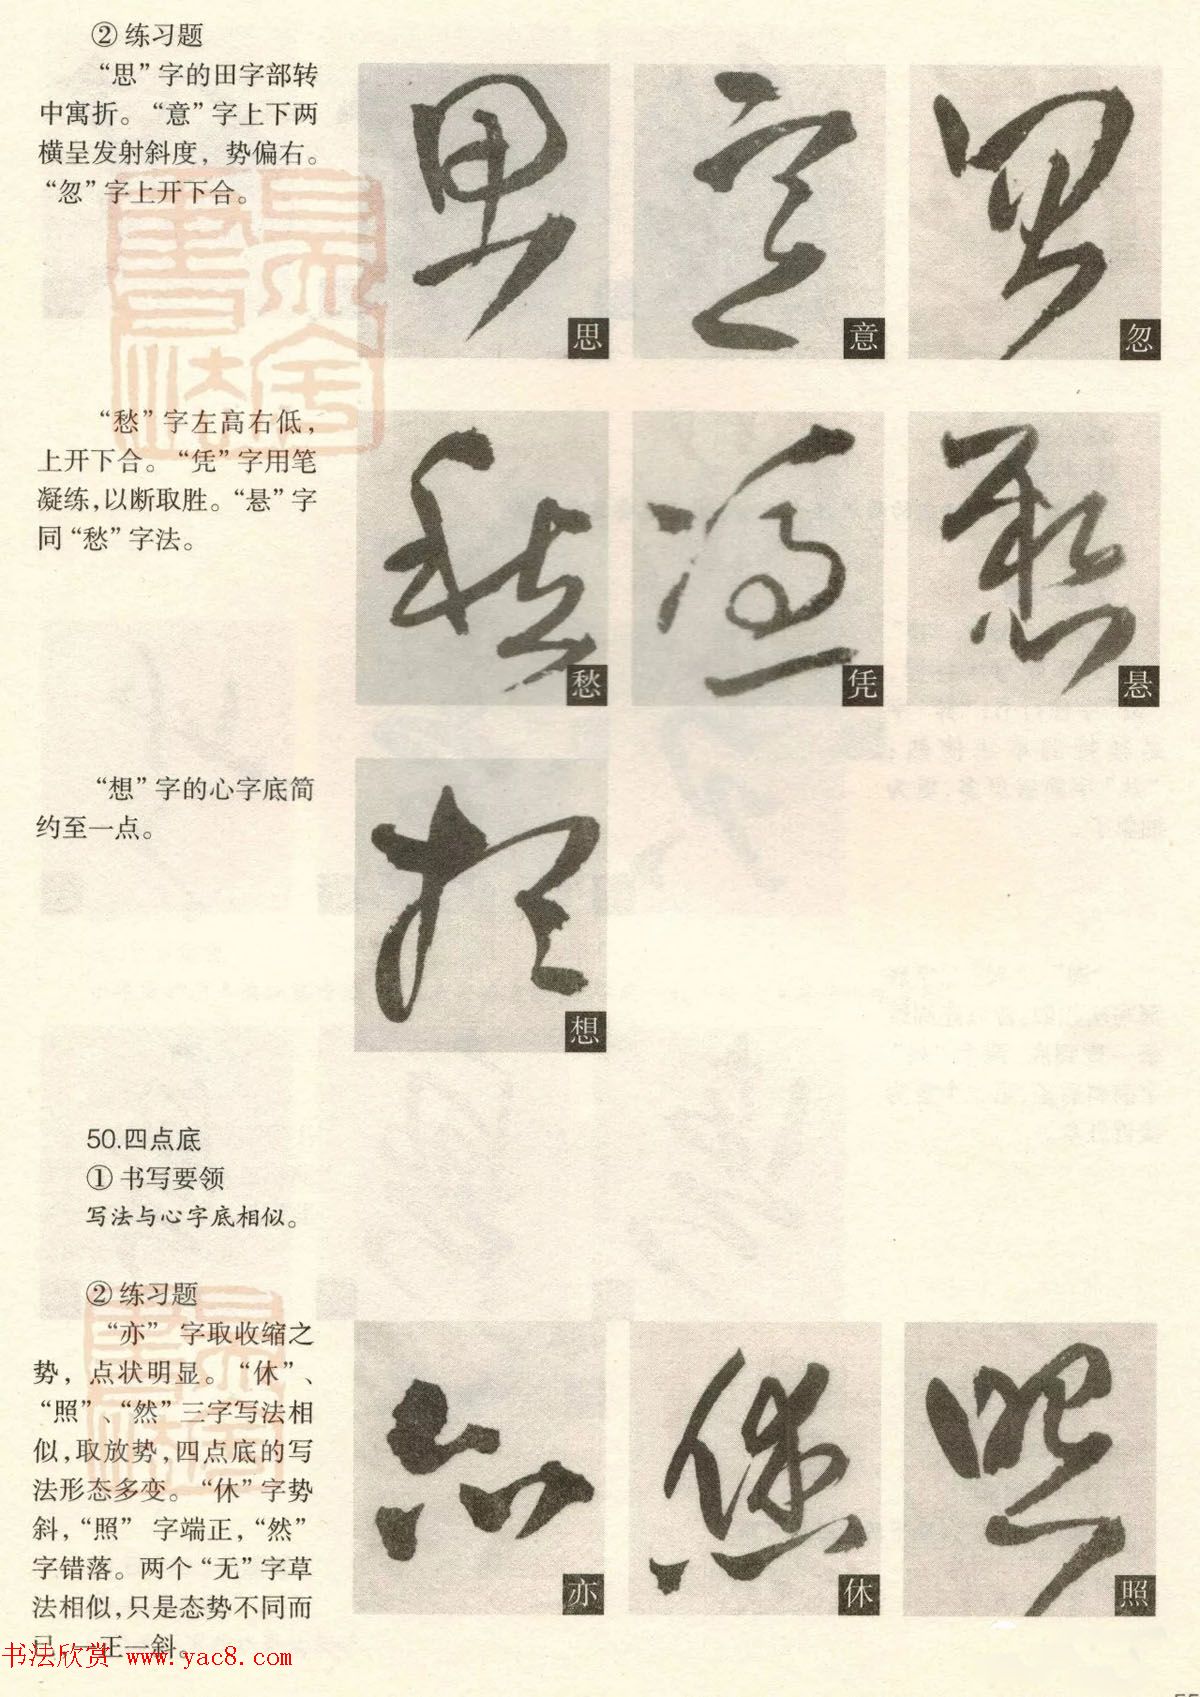 ② 练习题
“思”字的田字部转
中寓折。“意”字上下两
横呈发射斜度，势偏右。
“忽”字上开下合。
思
意
忽
“愁”字左高右低，
上开下合。“凭”字用笔
凝练，以断取胜。“悬”字
同“愁”字法。
愁
凭
悬
“想”字的心字底简
约至一点。
想
50.四点底
① 书写要领
写法与心字底相似。
② 练习题
“亦” 字取收缩之
势，点状明显。“休”、
“照”、“然”三字写法相
似，取放势，四点底的写
法形态多变。“休”字势
斜，“照” 字端正，“然”
字错落。两个“无”字草
法相似，只是态势不同而
一正一斜。
亦
休
照
书法欣赏 www.yac8.com